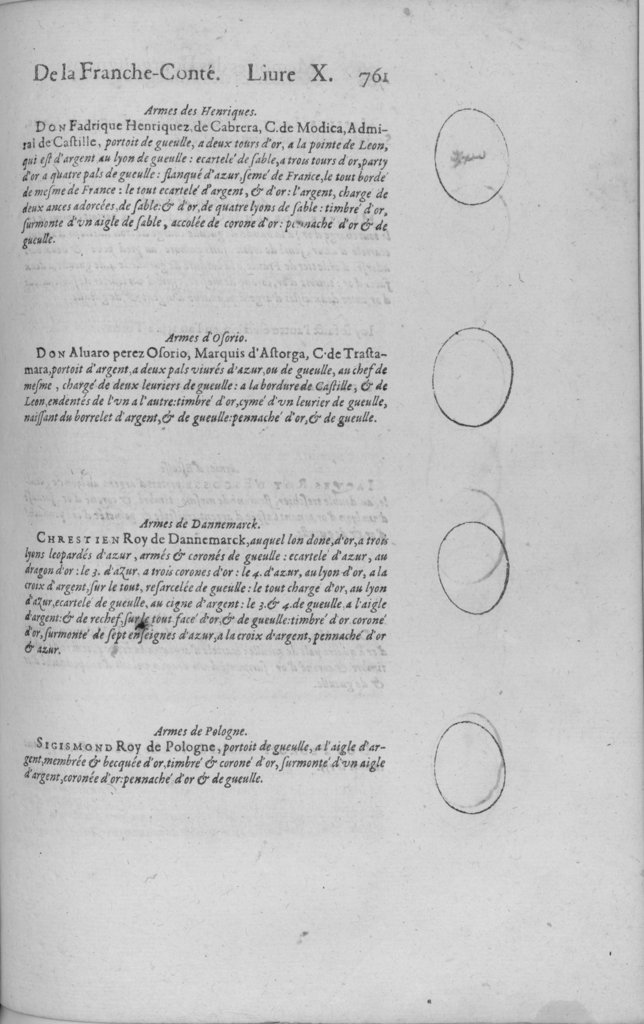 De la Franche-Conté. Liure X. 761
Armes des Henriques.
DON Fadrique Henriquez de Cabrera, C. de Modica, Admi-
ral de Castille, portoit de gueulle, a deux tours d'or, a la pointe de Leon,
qui est d'argent au lyon de gueulle : ecartelé de sable, a trois tours d'or, party
d'or a quatre pals de gueulle : flanqué d'azur, semé de France, le tout bordé
de mesme de France : le tout ecartelé d'argent, & d'or : l'argent, charge de
deux ances adorcées, de sable: & d'or, de quatre lyons de sable : timbré d'or,
surmonte d'vn aigle de sable, accolée de corone d'or : pennaché d'or & de
gueulle.
Armes d'Osorio.
DON Aluaro perez Osorio, Marquis d'Astorga, C. de Trasta-
mara, portoit d'argent, a deux pals viurés d'azur, ou de gueulle, au chef de
mesme, chargé de deux leuriers de gueulle : a la bordure de Castille, & de
Leon, endentés de l'vn a l'autre: timbré d'or, cymé d'vn leurier de gueulle,
naissant du borrelet d'argent, & de gueulle: pennaché d'or, & de gueulle.
Armes de Dannemarck.
CHRESTIEN Roy de Dannemarck, auquel lon done, d'or, a trois
lyons leopardés d'azur, armés & coronés de gueulle : ecartelé d'azur, au
dragon d'or : le 3. d'azur. a trois corones d'or : le 4. d'azur, au lyon d'or, a la
croix d'argent, sur le tout, resarcelée de gueulle : le tout chargé d'or, au lyon
d'azur, ecartelé de gueulle, au cigne d'argent : le 3. & 4. de gueulle, a l'aigle
d'argent: & de rechef, sur le tout facé d'or, & de gueulle: timbré d'or coroné
d'or, surmonté de sept enseignes d'azur, a la croix d'argent, pennaché d'or
& azur.
Armes de Pologne.
SIGISMOND Roy de Pologne, portoit de gueulle, a l'aigle d'ar-
gent, membrée & becquée d'or, timbré & coroné d'or, surmonté d'vn aigle
d'argent, coronée d'or: pennaché d'or & de gueulle.